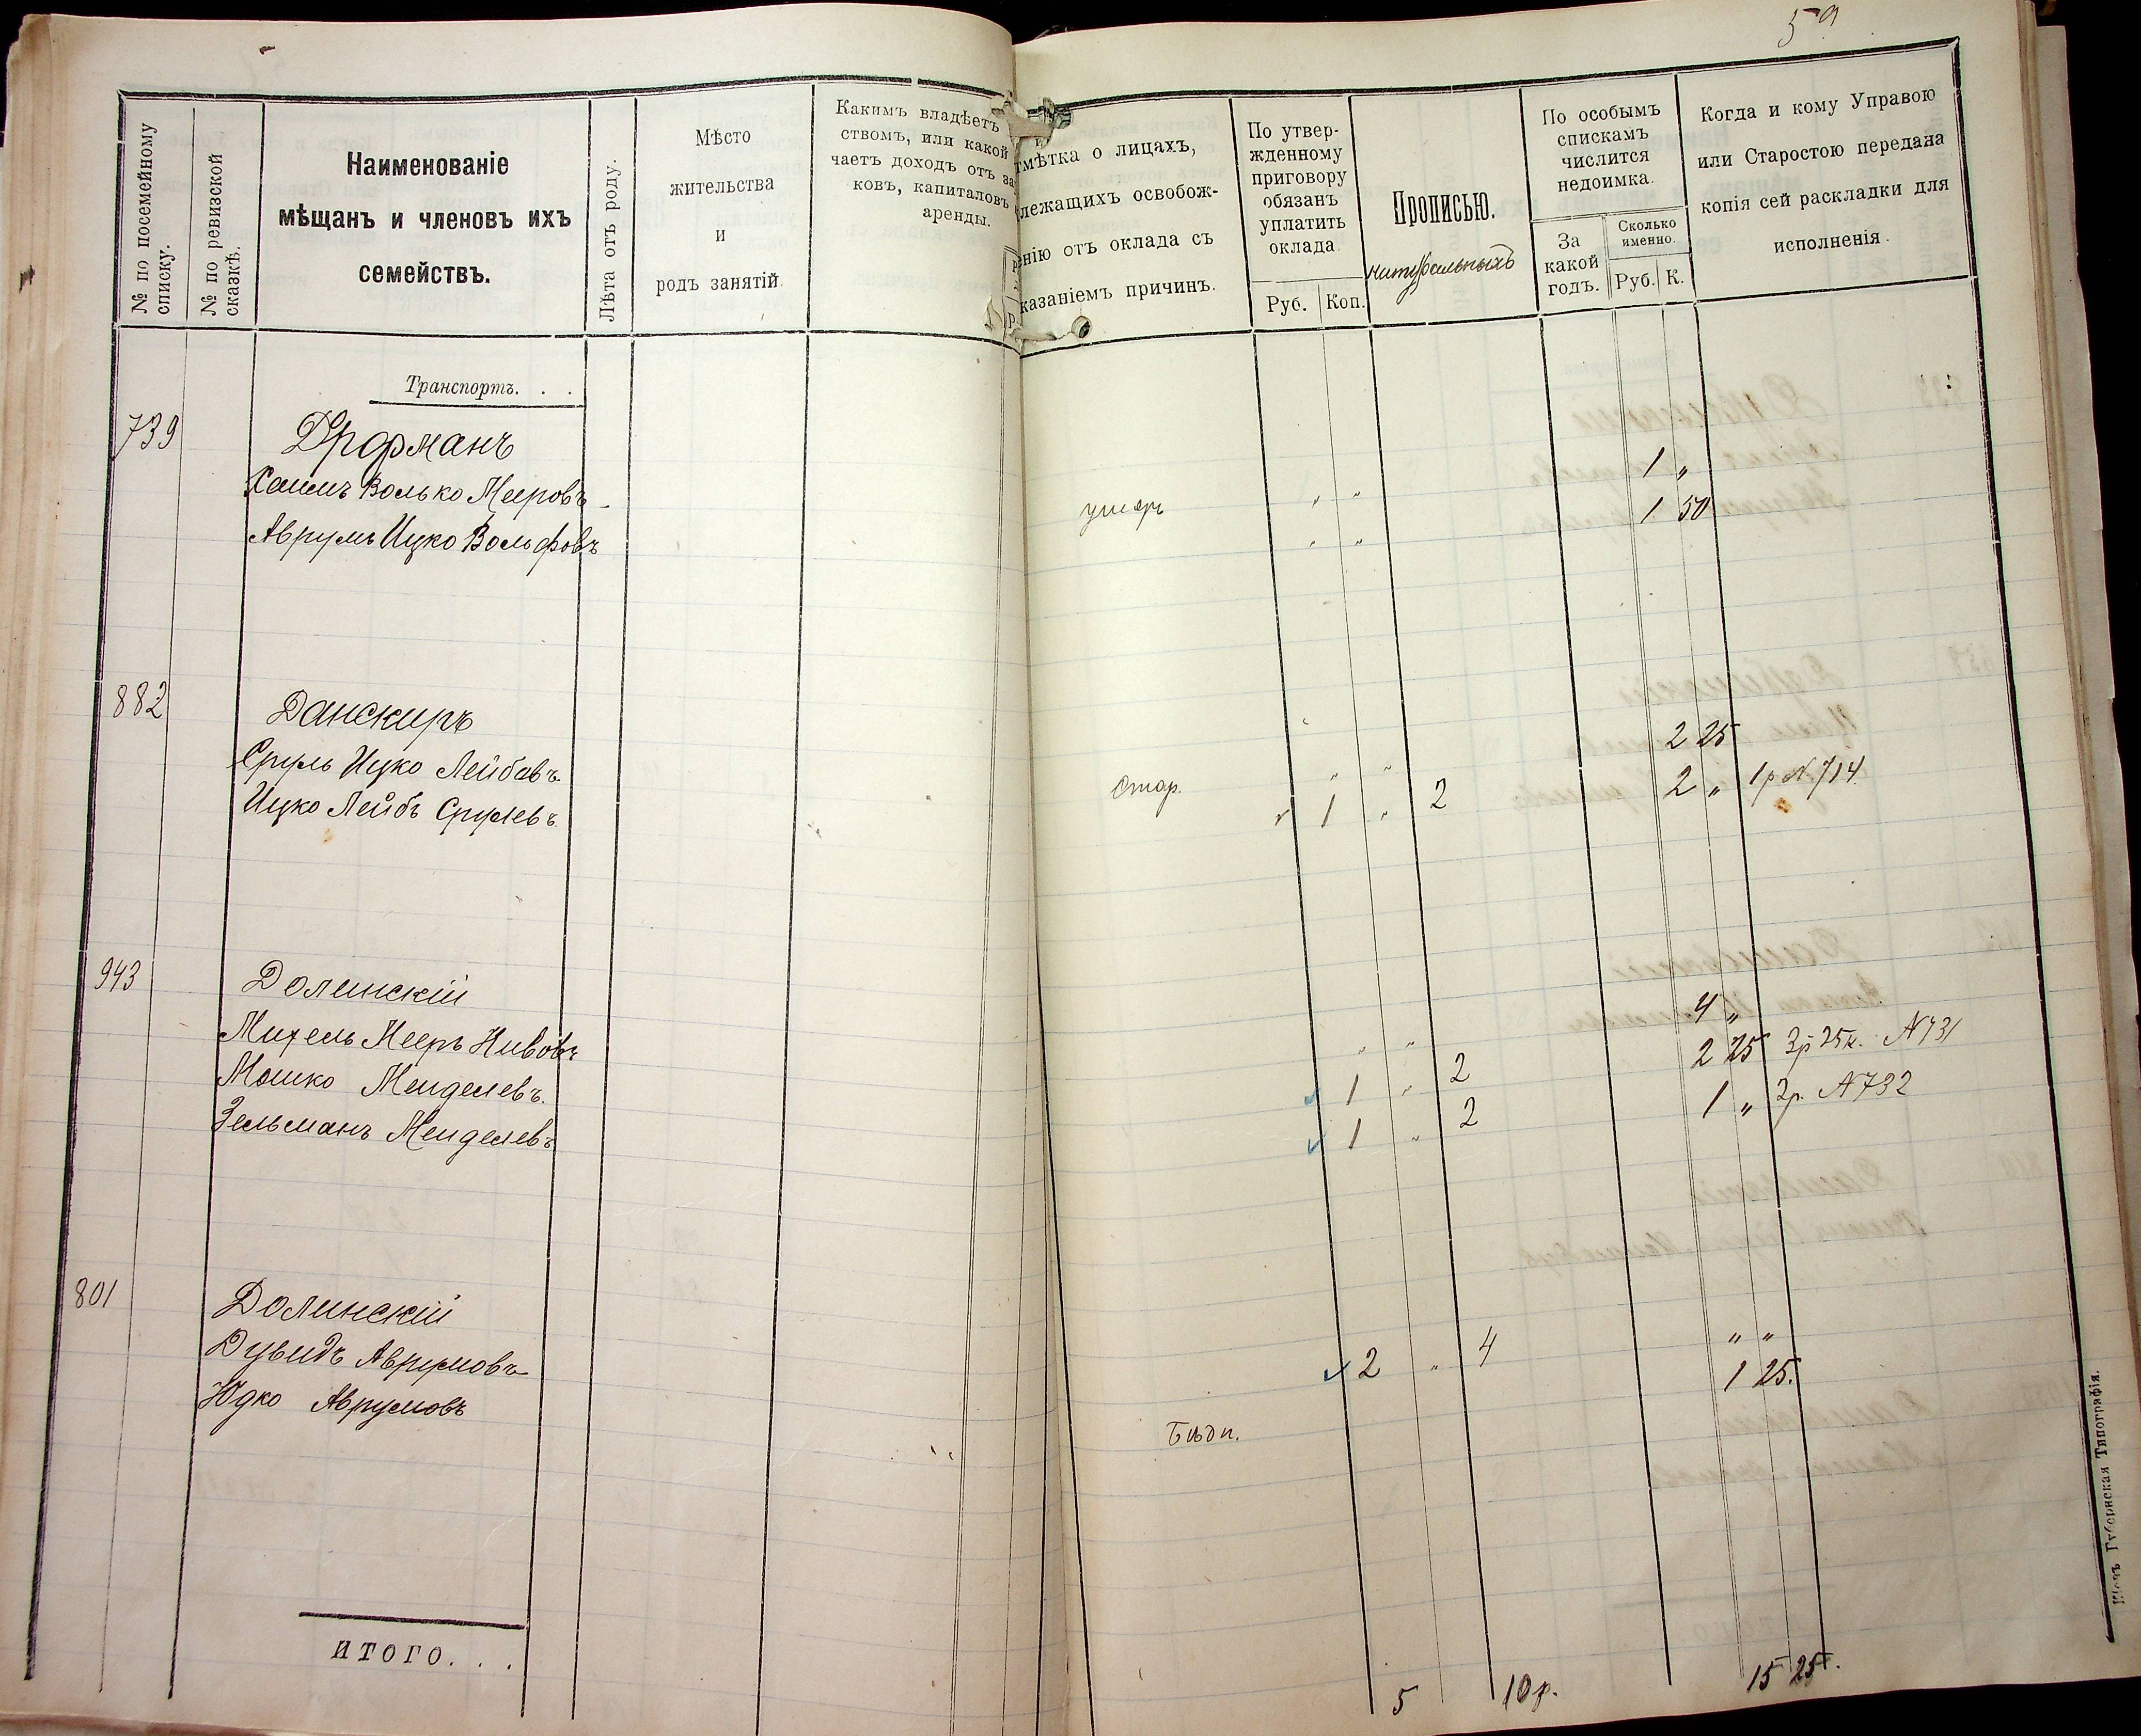 59
№ по посемейному списку.
№ по ревизской сказкѣ.
Наименованіе
мѣщанъ и членовъ ихъ
семействъ.
Лѣта отъ роду.
Мѣсто
жительства
и
родъ занятій.
Какимъ владѣетъ
ствомъ, или какой
чаетъ доходъ отъ за
ковъ, капиталовъ
аренды.
тмѣтка о лицахъ,
лежащихъ освобож-
нію отъ оклада съ
казаніемъ причинъ.
По утвер-
жденному
приговору
обязанъ
уплатить
оклада.
Руб. Коп.
Прописью.
натуральныхъ
По особымъ
спискамъ
числится
недоимка.
За
какой
годъ.
Сколько
именно.
Руб. К.
Когда и кому Управою
или Старостою передана
копія сей раскладки для
исполненія.
Транспортъ. . .
739 Дрорманъ
Хаимъ Волько Мееровъ умеръ " " 1 "
Аврумъ Ицко Вольфовъ " " 1 50
882 Данскиръ
Сруль Ицко Лейбовъ Стар. " " 2 25
Ицко Лейбъ Срулевъ 1 " 2 2 " 1р №714
943 Долинскій
Мееръ " " 4 "
Мошко Менделевъ. 1 " 2 2 25 3р 25к. №731
Зельманъ Менделевъ 1 " 2 1 " 2р. №732
801 Долинскій
Дувидъ Аврумовъ 2 " 4 " "
Юдко Аврумовъ Бѣдн. 1 25.
ИТОГО. . . 5 10р. 15 25.
Губернская Типографія.